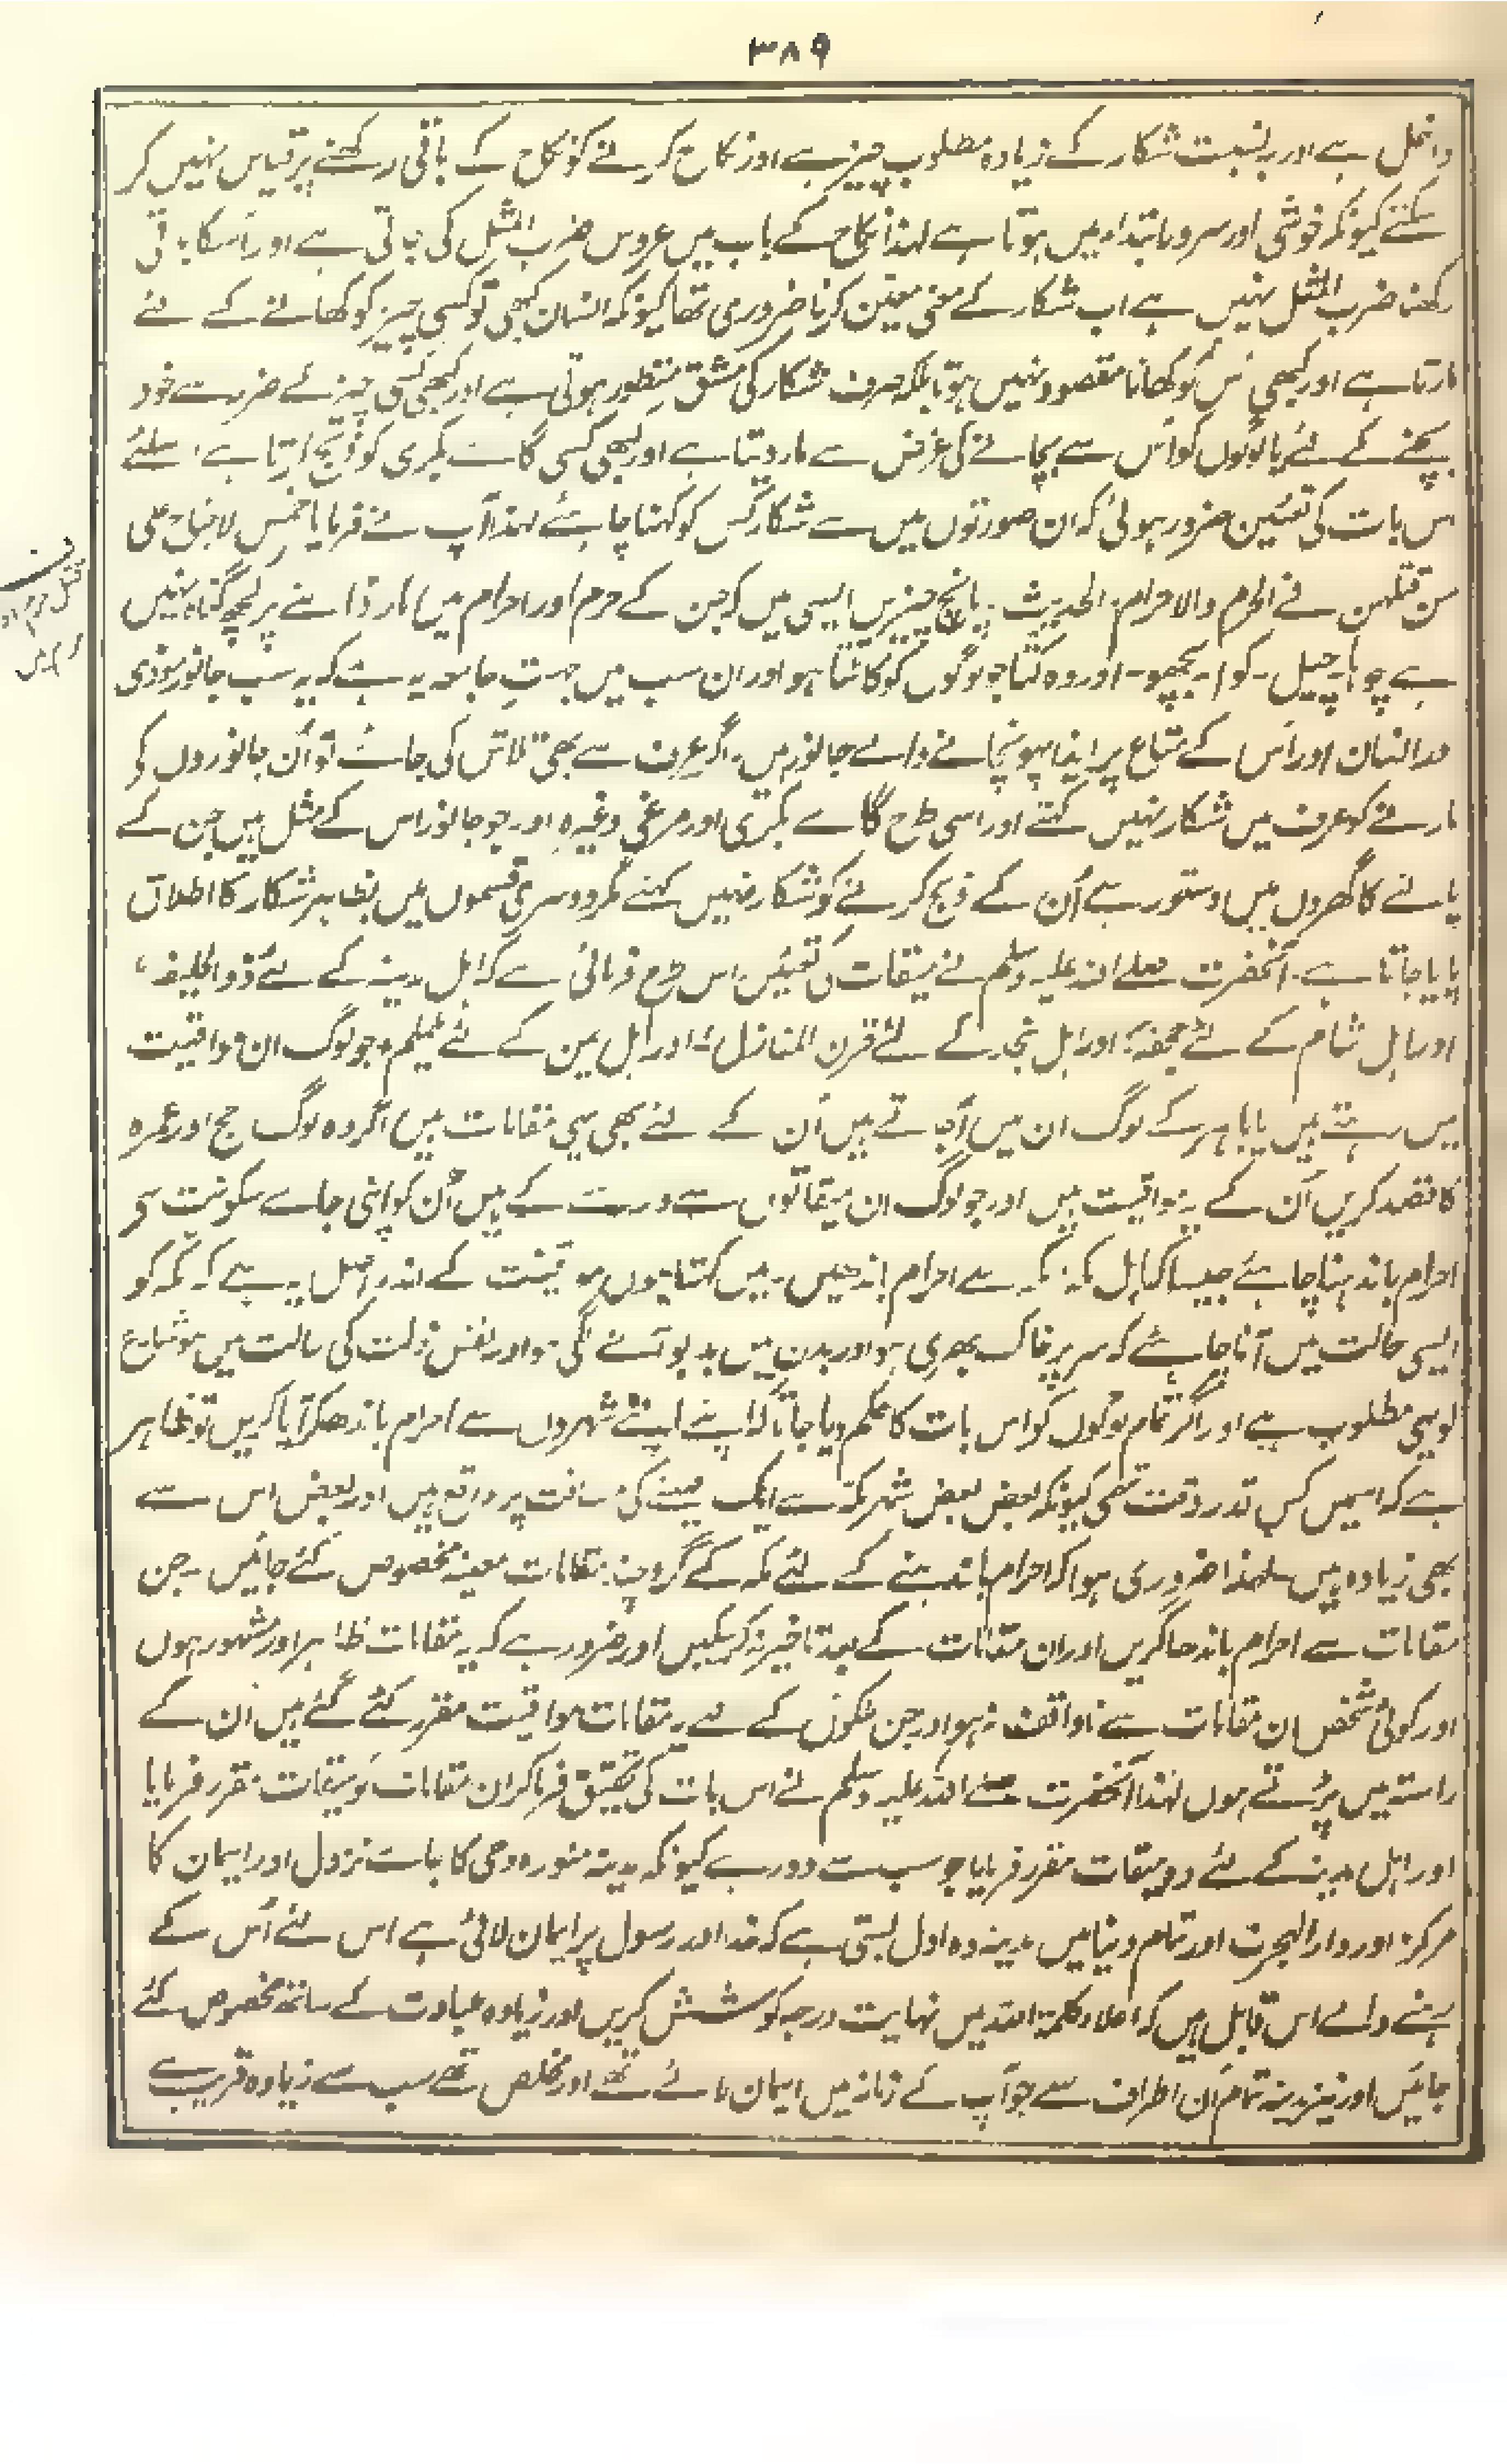 ۳۸۹
داخل ہے اور بہ نسبت شکار کے زیادہ مطلوب چیز ہے اور نکاح کرنے کو نکاح کے باقی رکھنے پر قیاس نہیں کر
سکتے کیونکہ خوشی اور سرور ابتداء میں ہوتا ہے لہذا نکاح کے باب میں عروس ضرب المثل کی جاتی ہے اور اسکا باقی
رکھنا ضرب المثل نہیں ہے اب شکار کے معنی معین کرنا ضروری تھا کیونکہ انسان کبھی تو کسی چیز کو کھانے کے لئے
مارتا ہے اور کبھی اس کو کھانا مقصود نہیں ہوتا بلکہ صرف شکار کی مشق منظور ہوتی ہے اور کبھی کسی چیز کے ضرر سے خود
بچنے کے لئے یا لوگوں کو اُس سے بچانے کی غرض سے مار دیتا ہے اور کبھی کسی گائے بکری کو ذبح کرتا ہے اسلئے
اس بات کی تعیین ضرور ہوئی کہ ان صورتوں میں سے شکار کس کو کہنا چاہئے لہذا آپ نے فرمایا خمس لا جناح علی
من قتلهن فے الحرم والاحرام الحدیث۔ پانچ چیزیں ایسی ہیں کہ جن کے حرم اور احرام میں مار ڈالنے پر کچھ گناہ نہیں
ہے چوہا۔ چیل۔ کوا۔ بچھو۔ اور وہ کتا جو لوگوں کو کاٹتا ہو اور ان سب میں جہتِ جامعہ یہ ہے کہ یہ سب جانور موذی
اور انسان اور اُس کے متاع پر ایذا پہونچانے والے جانور ہیں۔ اگر عرف سے بھی تلاش کی جائے تو اُن جانوروں کی
مارنے کو عرف میں شکار نہیں کہتے اور اسی طرح گائے بکری اور مرغی وغیرہ اور جو جانور اس کے مثل ہیں جن کے
پالنے کا گھروں میں دستور ہے اُن کے ذبح کرنے کو شکار نہیں کہتے مگر دوسری قسموں میں بظاہر شکار کا اطلاق
پایا جاتا ہے۔ آنحضرت صلے اللہ علیہ وسلم نے میقات کی تعیین اس طرح فرمائی ہے کہ اہل مدینہ کے لئے ذوالحلیفہ،
اور اہل شام کے لئے جحفہ؛ اور اہل نجد کے لئے قرن المنازل؛ اور اہل یمن کے لئے یلملم۔ جو لوگ ان مواقیت
میں رہتے ہیں یا باہر کے لوگ ان میں آجاتے ہیں اُن کے لئے بھی یہی مقامات ہیں اگر وہ لوگ حج اور عمرہ
کا قصد کریں اُن کے یہ مواقیت ہیں اور جو لوگ ان میقاتوں سے ورے کے ہیں اُن کو اپنی جاے سکونت سی
احرام باندہنا چاہئے جیسا کہ اہل مکہ؛ مکہ سے احرام باندھیں۔ میں کہتا ہوں مواقیت کے اندر اصل یہ ہے کہ مکہ کو
ایسی حالت میں آنا چاہئے کہ سر پر خاک بھری ہو اور بدن میں بدبو آنے لگی ہو اور نفس ذلت کی حالت میں ہو شارع
کو یہی مطلوب ہے اور اگر تمام لوگوں کو اس بات کا حکم دیا جاتا کہ اپنے اپنے شہروں سے احرام باندھکر آیا کریں تو ظاہر
ہے کہ اسمیں کس قدر دقت تھی کیونکہ بعض بعض شہر مکہ سے ایک مہینے کی مسافت پر واقع ہیں اور بعض اس سے
بھی زیادہ ہیں۔ لہذا ضروری ہوا کہ احرام باندہنے کے لئے مکہ کے گرد چند مقامات معینہ مخصوص کئے جائیں۔ جن
مقامات سے احرام باندھا کریں اور ان مقامات کے بعد تاخیر نہ کر سکیں اور ضرور ہے کہ یہ مقامات ظاہر اور مشہور ہوں
اور کوئی شخص ان مقامات سے ناواقف نہ ہو اور جن ملکوں کے لیے یہ مقامات مواقیت مقرر کئے گئے ہیں اُن کے
راستہ میں پڑتے ہوں لہذا آنحضرت صلے اللہ علیہ وسلم نے اس بات کی تحقیق فرما کر ان مقامات کو میقات مقرر فرمایا
اور اہل مدینہ کے لئے وہ میقات مقرر فرمایا جو سب سے دور ہے کیونکہ مدینہ منورہ وحی کا جائے نزول اور ایمان کا
مرکز اور دارالہجرت اور تمام دنیا میں مدینہ وہ اول بستی ہے کہ خدا اور رسول پر ایمان لائی ہے اس لئے اُس کے
رہنے والے اس قابل ہیں کہ اعلاء کلمۃ اللہ میں نہایت درجہ کوشش کریں اور زیادہ عبادت کے ساتھ مخصوص کئے
جائیں اور نیز مدینہ تمام اُن اطراف سے جو آپ کے زمانہ میں ایمان لائے تھے اور مخلص تھے سب سے زیادہ قریب ہے